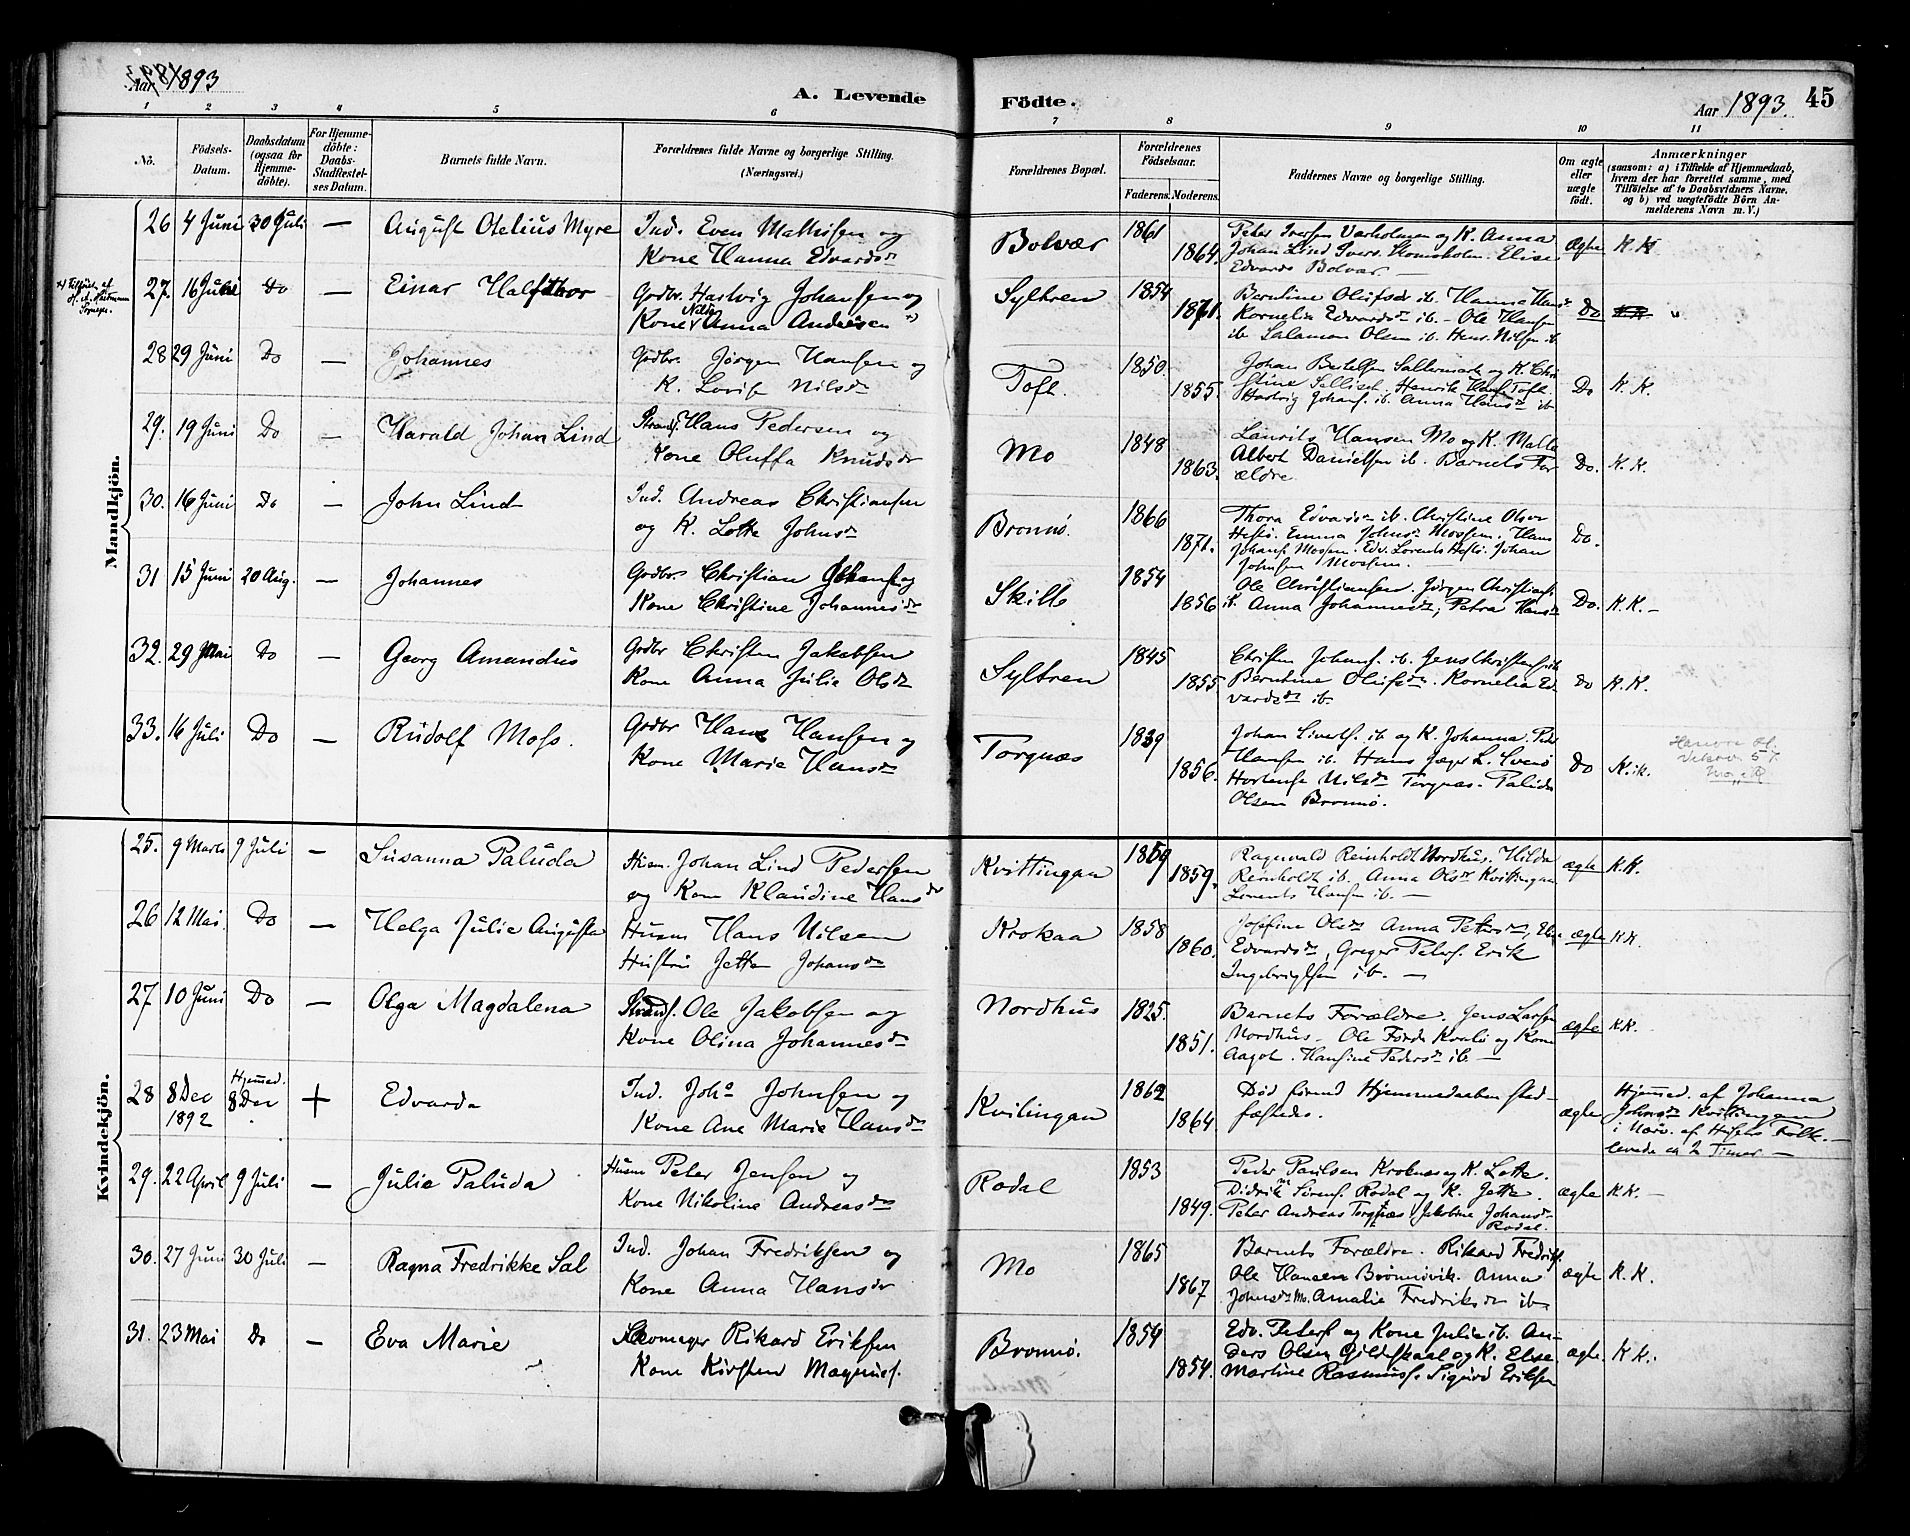 Aar 1893
A. Levende Födte.
Aar 1893. 45
1 2 3 4 5 6 7 8 9 10 11
No.
Födsels-Datum.
Daabsdatum (ogsaa for Hjemme-döbte).
For Hjemme-döbte: Daabs-Stadfæstel-ses Datum.
Barnets fulde Navn.
Forældrenes fulde Navne og borgerlige Stilling. (Næringsvei.)
Forældrenes Bopæl.
Forældrenes Födselsaar.
Faderens. Moderens.
Faddernes Navne og borgerlige Stilling.
Om ægte eller uægte födt.
Anmærkninger
(saasom: a) i Tilfælde af Hjemmedaab,
hvem der har forrettet samme, med
Tilföielse af to Daabsvidners Navne,
og b) ved uægtefödte Börn An-
melderens Navn m. V.)
Mandkjön.
26 4 Juni 30 Juli — August Otelius Myre
Ind. Even Mathisen og
Kone Hanna Edvardsdr
Bolvær 1861 1864.
Peter Iversen Varholmen og K. Anna
Johan Lind Ivers. Skomsholm. Elise
Edvards Bolvær
Ægte K. K
27. 16 Juli Do — Einar Halfthor
Godbr. Hartvig Johansen og
Kone Nilda Anna Andersen
Syltren 1854 1871.
Berntine Olufsdr ib. Hanna Hansdr
Kornelia Edvardsdr ib. – Ole Hansen
ib. Salamon Olsen ib. Hens. Nilsen ib.
Do K.K
28 29 Juni Do — Johannes
Godbr. Jørgen Hansen og
K. Lovise Nilsdr
Toft. 1850. 1855.
Johan Bertelsen Saltermark og K. Chri
stine Selliset. Henrik Hans. Toft.
Hartvig Johans. ib. Anna Hansdr ib.
Do K. K.
29. 19 Juni Do — Harald Johan Lind
Strands. Hans Pedersen og
Kone Oluffa Knudsdr
Mo 1848 1863.
Laurits Hansen Mo og K. Malla
Albert Danielsen ib. Barnets For
ældre
Do. K. K.
30. 16 Juni Do — John Lind
Ind. Andreas Christiansen
og K. Lotte Johnsdr
Brønnø. 1866 1871.
Thora Edvardsdr ib. Christine Olsdr
Hestø. Emma Johnsdr Mossem. Hans
Johans. Mossem. Edv. Lorents Hestø. Johan
Johnsen Mossem.
Do.
31 15 Juni 20 Aug. — Johannes
Godbr. Christian Johans. og
Kone Christine Johannesdr
Skille 1854 1856
Ole Christiansen. Jørgen Christians.
ib. Anna Johannesdr, Petra Hansdr
Do. K. K. –
32. 29 Mai Do — Georg Amandus
Godbr Christen Jakobsen
Kone Anna Julie Olsdr
Syltren 1845 1855
Christen Johans. ib. Jens Christens. ib
Berntine Olufsdr. Kornelia Ed
vardsdr ib.
Do K. K.
33. 16 Juli Do — Rudolf Moss.
Godbr Hans Hansen og
Kone Marie Hansdr
Torgnæs 1839 1856.
Johan Siverts. ib og K. Johanna. Peder
Hansen ib. Hans Jæger L. Svenø
Hortense Nilsdr Torgnæs. Paluda
Olsen Brønnø.
Do K. K.
Kvindekjön.
25. 9 Marts 9 Juli — Susanna Paluda
Johan Lind Pedersen
og Kone Klaudine Hansdr
Kvittingan 1859 1859.
Ragnvald Reinholdt Nordhus. Hilda
Reinholdt ib. Anna Olsdr Kvittingan
Lorents Hansen ib. —
ægte K. K.
26 12 Mai Do — Helga Julie Augusta
Husm Hans Nilsen
Hustru Jette Johansdr
Krokaa 1858 1860.
Josefine Olsdr Anna Petersdr,
Edvardsdr, Greger Peters. Erik
Ingebrigtsen ib. —
ægte K K.
27 10 Juni Do — Olga Magdalena
Strands. Ole Jakobsen og
Kone Olina Johannesdr
Nordhus 1825. 1851.
Barnets Forældre. Jens Larsen
Nordhus – Ole Førde Kvalø og Kone
Aagot. Hansine Pedersdr ib. —
ægte K K.
28 8 Dec 1892 Hjemmed. 8 Dec + Edvarda
Ind. Johs Johnsen og
Kone Ane Marie Hansdr
Kvitingan 1862 1864.
Død førend Hjemmedaaben stad-
fæstedes.
ægte
Hjemmed. af Johanna
Johnsdr Kvittingan
i Nærv. af Husets Folk. —
levede ca 2 Timer —
29. 22 April 9 Juli — Julie Paluda
Husm Peter Jensen og
Kone Nikoline Andreasdr
Rodal 1853 1849.
Peder Paulsen Kroknes og K. Lotte.
Didrik Sørens. Rodal og K. Jette.
Peter Andreas Torgnæs Jakobine Johansdr
Rodal.
ægte K K. –
30. 27 Juni 30 Juli — Ragna Fredrikke Sal
Ind. Johan Fredriksen og
Kone Anna Hansdr
Mo 1865 1867
Barnets Forældre. Rikard Fredriks.
Ole Hansen Brønnøvik. Anna
Johnsdr Mo. Amalie Fredriksdr ib
ægte K. K.
31. 23 Mai Do — Eva Marie
Skomager Rikard Eriksen
Kone Kirsten Magnus.
Brønnø. 1854 1854.
Edv. Peters. og Kone Julie ib. An-
ders Olsen Gildeskaal og K. Elise
Martine Rasmus. Sigurd Eriksen
ægte. K K.